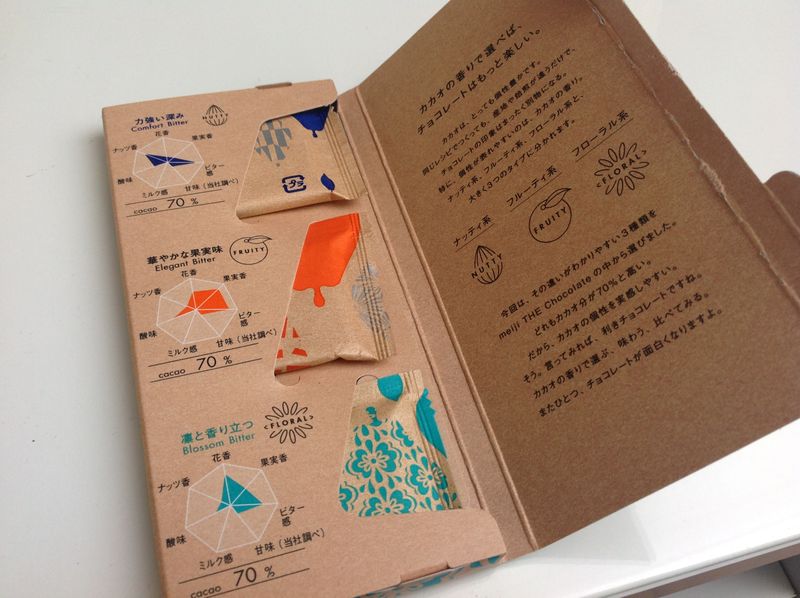 力強い深み
Comfort Bitter
NUTTY
花香
ナッツ香
果実香
酸味
ビター感
ミルク感
甘味(当社調べ)
cacao 70 %
華やかな果実味
Elegant Bitter
FRUITY
花香
ナッツ香
果実香
酸味
ビター感
ミルク感
甘味(当社調べ)
cacao 70 %
凛と香り立つ
Blossom Bitter
<FLORAL>
花香
ナッツ香
果実香
酸味
ビター感
ミルク感
甘味(当社調べ)
cacao 70 %
プラ
カカオの香りで選べば、
チョコレートはもっと楽しい。
カカオは、とっても個性豊かです。
同じレシピでつくっても、産地や焙煎が違うだけで、
チョコレートの印象はまったく別物になる。
特に、個性が表れやすいのは、カカオの香り。
ナッティ系、フルーティ系、フローラル系と、
大きく3つのタイプに分かれます。
ナッティ系
フルーティ系
フローラル系
NUTTY
FRUITY
<FLORAL>
今回は、その違いがわかりやすい3種類を
meiji THE Chocolate の中から選びました。
どれもカカオ分が70%と高い。
だから、カカオの個性を実感しやすい。
そう。言ってみれば、利きチョコレートですね。
カカオの香りで選ぶ、味わう、比べてみる。
またひとつ、チョコレートが面白くなりますよ。